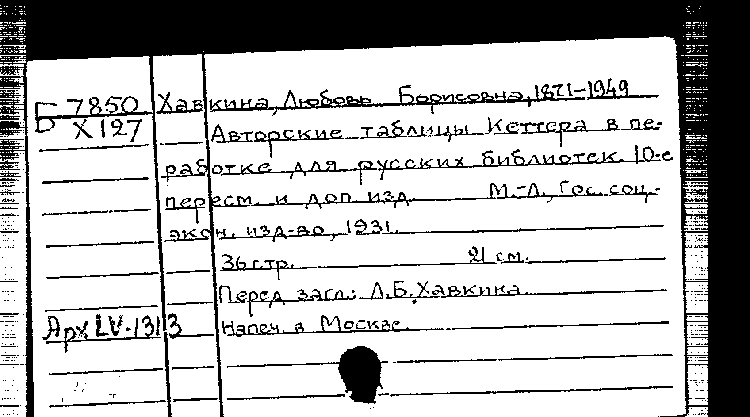 Б 7850 Хавкина, Любовь Борисовна, 1871-1949
Х127 Авторские таблицы Кеттера в пе-
работке для русских библиотек. 10-е
пересм. и доп. изд. М.-Л., Гос. соц.-
экон. изд-во, 1931.
36 стр. 21 см.
Перед загл.: Л.Б. Хавкина
Арх LV-1313 Напеч. в Москве.